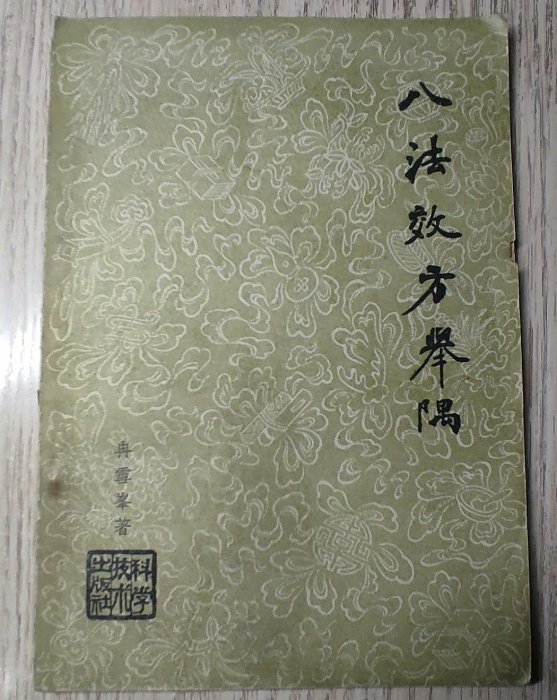 八法效方举隅
冉雪峯著
科学技术出版社